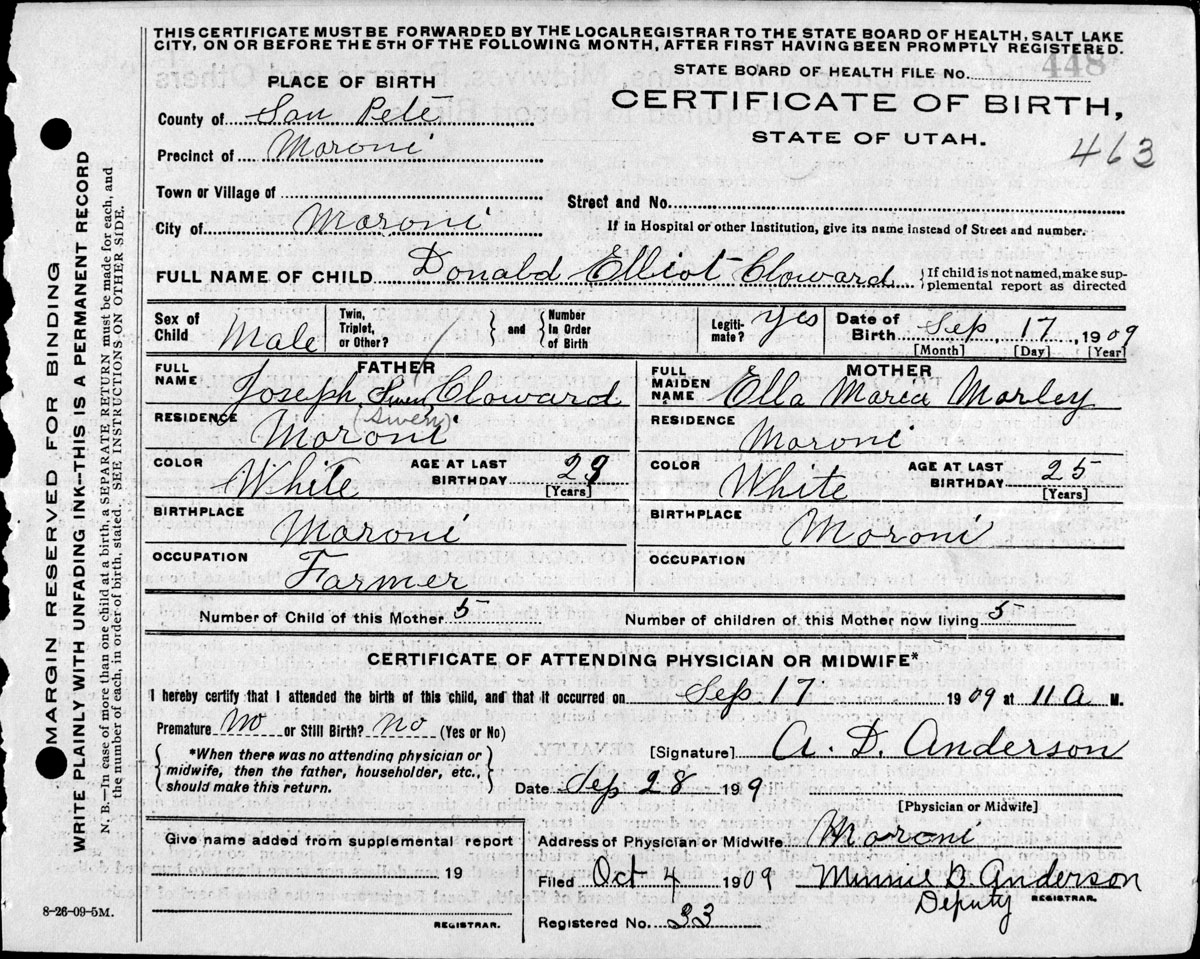 THIS CERTIFICATE MUST BE FORWARDED BY THE LOCAL REGISTRAR TO THE STATE BOARD OF HEALTH, SALT LAKE
CITY, ON OR BEFORE THE 5TH OF THE FOLLOWING MONTH, AFTER FIRST HAVING BEEN PROMPTLY REGISTERED.
STATE BOARD OF HEALTH FILE No. 448
PLACE OF BIRTH
CERTIFICATE OF BIRTH,
STATE OF UTAH.
463
County of San Pete
Precinct of Moroni
Town or Village of
Street and No.
City of Moroni
If in Hospital or other Institution, give its name instead of Street and number.
FULL NAME OF CHILD Donald Elliot Cloward { If child is not named, make sup-
plemental report as directed
Sex of Child Male
Twin, Triplet, or Other? / } and { Number In Order of Birth
Legiti-mate? yes
Date of Birth Sep 17, 1909
[Month] [Day] [Year]
FATHER
FULL NAME Joseph Swen Cloward
(Swen)
RESIDENCE Moroni
COLOR White
AGE AT LAST BIRTHDAY 29
[Years]
BIRTHPLACE Moroni
OCCUPATION Farmer
MOTHER
FULL MAIDEN NAME Ella Maria Morley
RESIDENCE Moroni
COLOR White
AGE AT LAST BIRTHDAY 25
[Years]
BIRTHPLACE Moroni
OCCUPATION
Number of Child of this Mother 5
Number of children of this Mother now living 5
CERTIFICATE OF ATTENDING PHYSICIAN OR MIDWIFE*
I hereby certify that I attended the birth of this child, and that it occurred on Sep 17 1909 at 11 a M.
Premature No or Still Birth? No (Yes or No)
*When there was no attending physician or
midwife, then the father, householder, etc.,
should make this return.
[Signature] A. D. Anderson
Date Sep 28 199
[Physician or Midwife]
Give name added from supplemental report
19
REGISTRAR.
Address of Physician or Midwife Moroni
Filed Oct 4 1909 Minnie B. Anderson
Deputy REGISTRAR.
Registered No. 33
8-26-09-5M.
MARGIN RESERVED FOR BINDING
WRITE PLAINLY WITH UNFADING INK--THIS IS A PERMANENT RECORD
N. B.—In case of more than one child at a birth, a SEPARATE RETURN must be made for each, and
the number of each, in order of birth, stated. SEE INSTRUCTIONS ON OTHER SIDE.